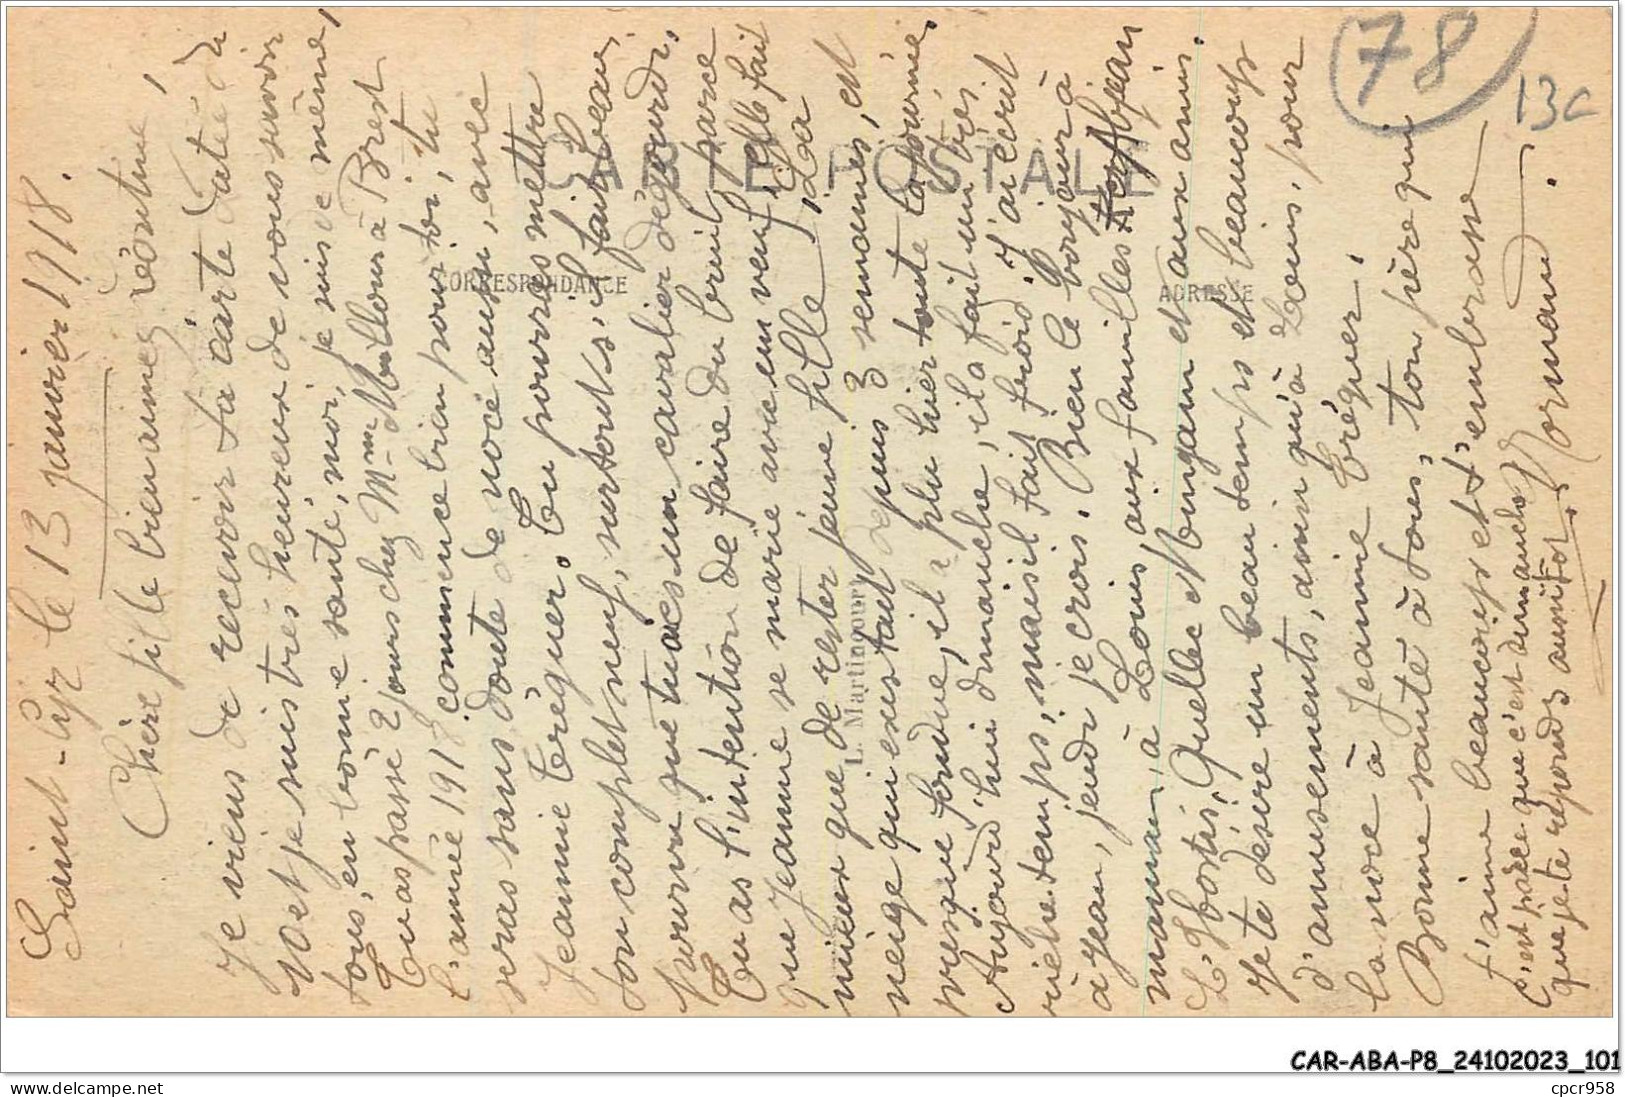 Saint-Cyr le 13 janvier 1918.
Chère fille bien aimée Léontine,
Je viens de recevoir ta carte datée du
10 et je suis très heureux de vous savoir
tous, en bonne santé, moi, je suis de même,
Tu as passé 2 jours chez Mme Moullous à Brest
l'année 1918 commence bien pour toi, tu
seras sans doute de noce aussi, avec
Jeannie Tréguer. Tu pourras mettre
ton complet neuf, surtout s'il fait beau,
pourvu que tu aies un cavalier dégourdi.
Tu as l'intention de faire du bruit, parce
que Jeanne se marie avec un veuf, elle fait
mieux que de rester jeune fille. La
neige qui existait depuis 3 semaines, est
presque fondue, il a plu hier toute la journée,
Aujourd'hui dimanche, il a fait un très
riche temps, mais il fait froid. J'ai écrit
à Jean, jeudi je crois. Bien le bonjour à
maman à Louis aux familles Abjean
L'Hostis, Quellec Mongam et aux amis.
Je te désire un beau temps et beaucoup
d'amusements, ainsi qu'à Louis, pour
la noce à Jeannie Tréguer.
Bonne santé à tous, ton père qui
t'aime beaucoup et t'embrasse
C'est parce que c'est dimanche
que je te réponds aussitôt. Normand.
CARTE POSTALE
CORRESPONDANCE
ADRESSE
L. Martingourt
78
13c
CAR-ABA-P8_24102023_101
delcampe.net
cpcr958